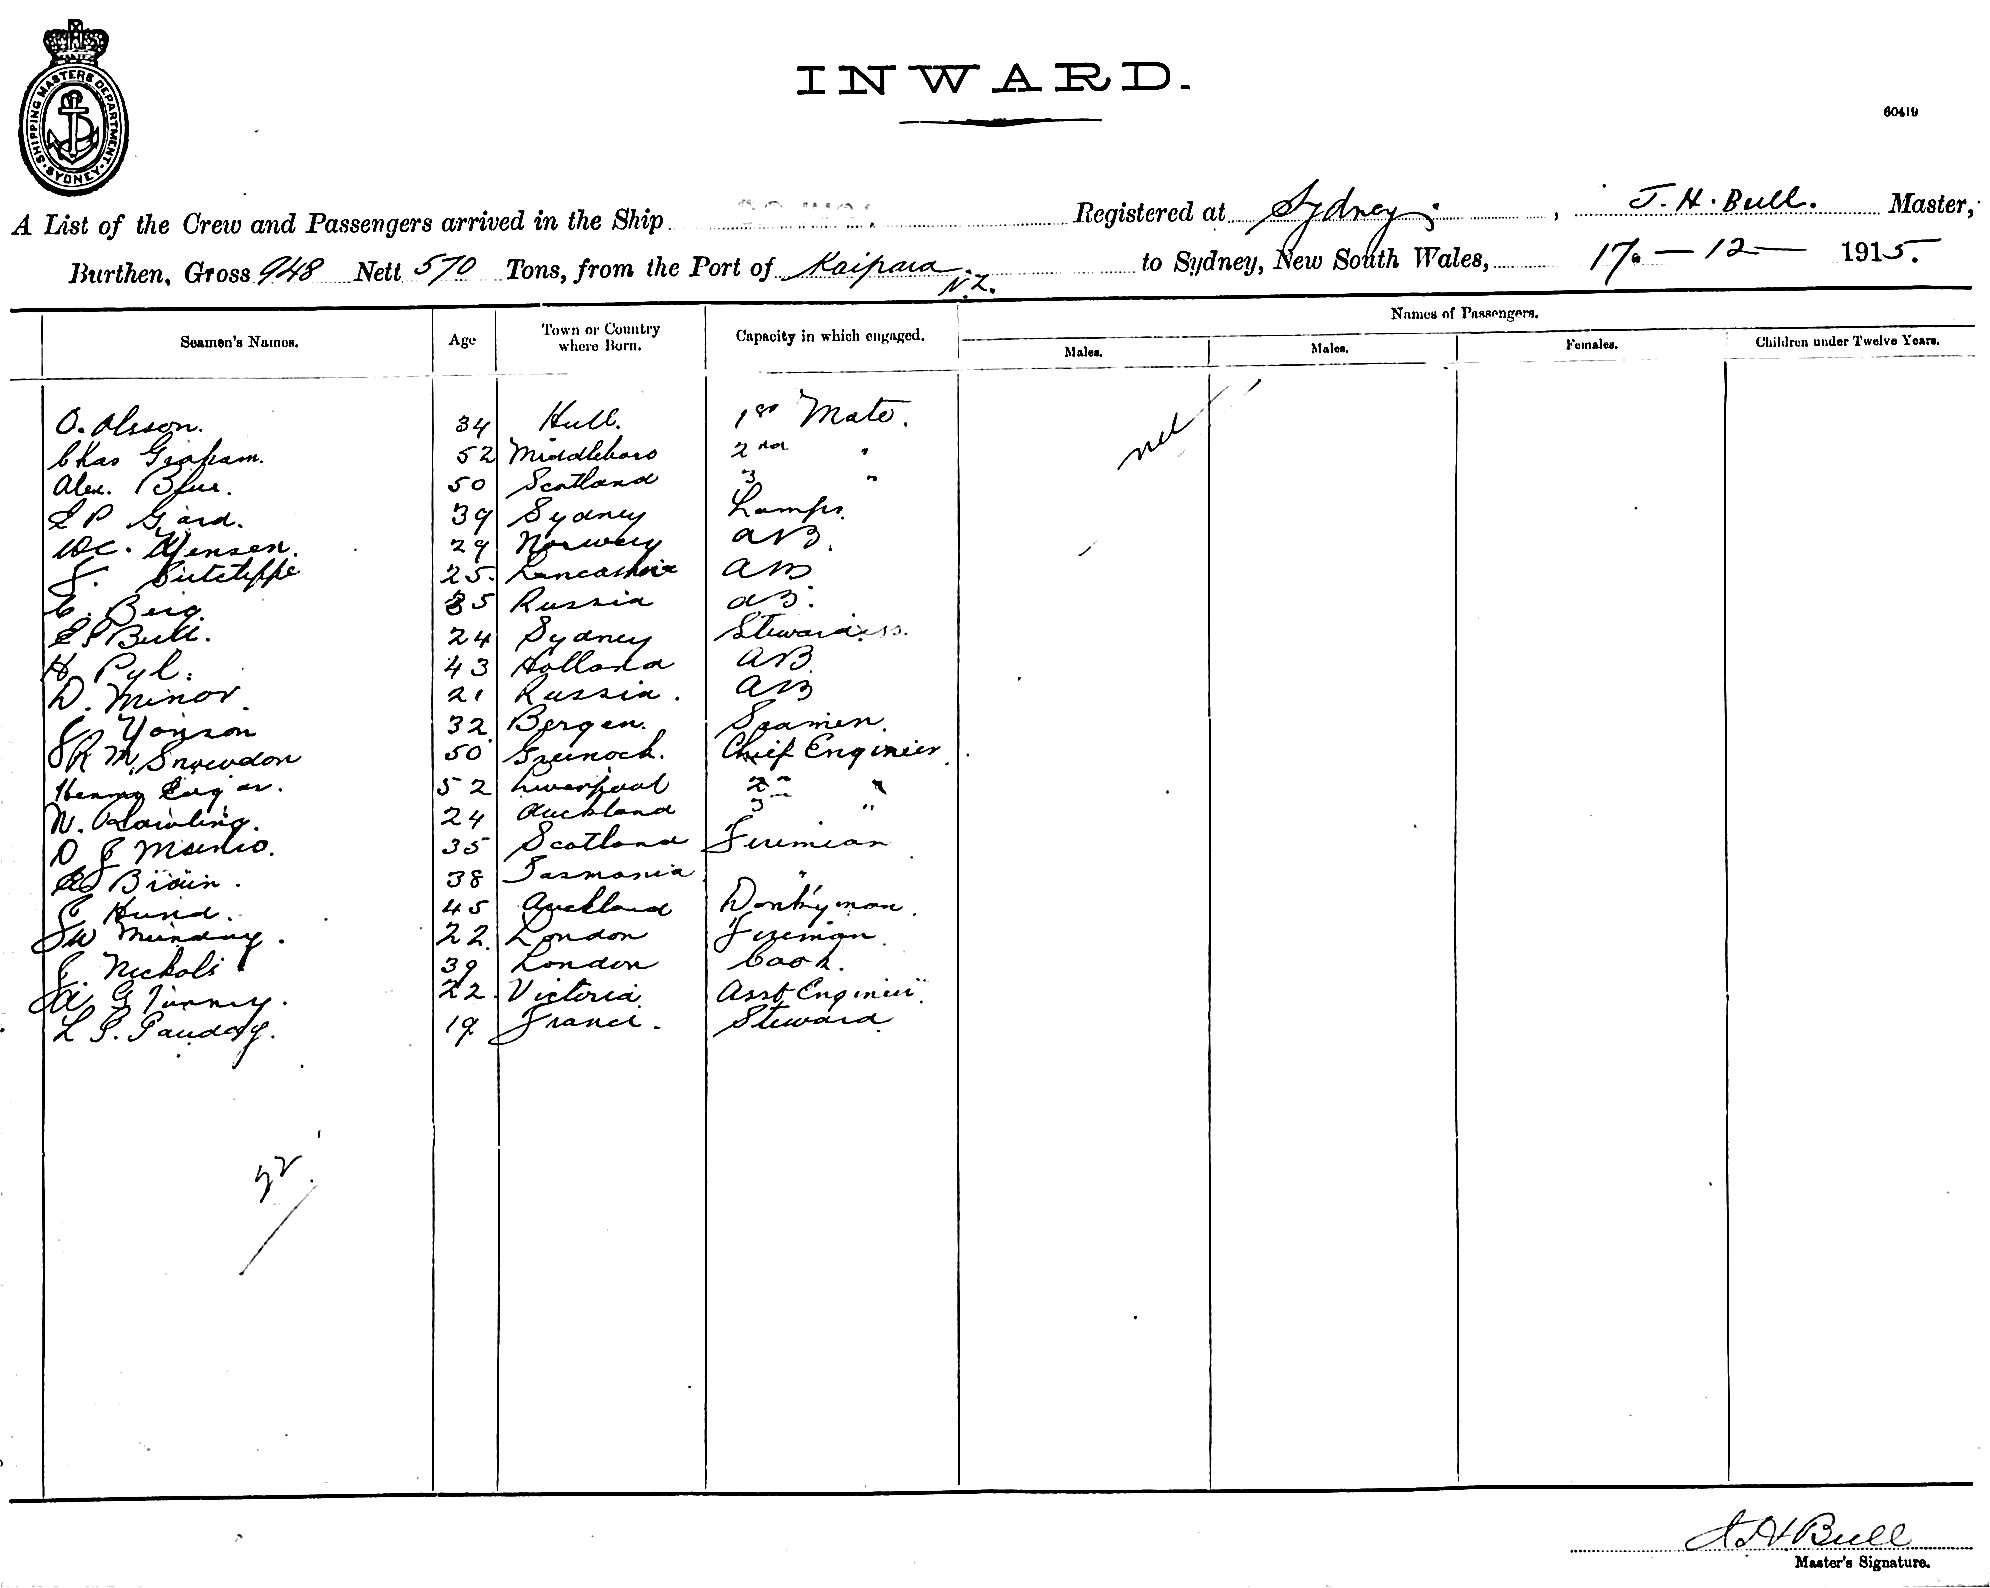 INWARD.
60419
SHIPPING MASTERS DEPARTMENT SYDNEY
A List of the Crew and Passengers arrived in the Ship Registered at Sydney, J. H. Bull. Master,
Burthen, Gross 948 Nett 570 Tons, from the Port of Kaipara N.Z. to Sydney, New South Wales, 17. - 12 - 1915.
Names of Passengers.
Seamen's Names. Age Town or Country where Born. Capacity in which engaged. Males. Males. Females. Children under Twelve Years.
O. Olsson. 34 Hull. 1st Mate.
Chas Graham. 52 Middleboro 2nd "
Alex. 50 Scotland 3 "
39 Sydney Lamps.
29 Norway AB.
Sutcliffe 25. Lancashire AB
C. Berg 35 Russia AB.
Bull. 24 Sydney Stewardess.
H. Pyl. 43 Holland AB
D. Minor. 21 Russia. AB
Yonson 32 Bergen. Seamen.
Snowdon 50 Greenock. Chief Engineer
Henry 52 Liverpool 2nd "
N. Rawling. 24 Auckland 3 "
35 Scotland Fireman
38 Tasmania "
Hund. 45 Auckland Donkyman.
W Munday. 22. London Fireman.
Nichols 39 London Cook.
A G 22. Victoria Asst Engineer.
L 19 France. Steward
22
J H Bull
Master's Signature.